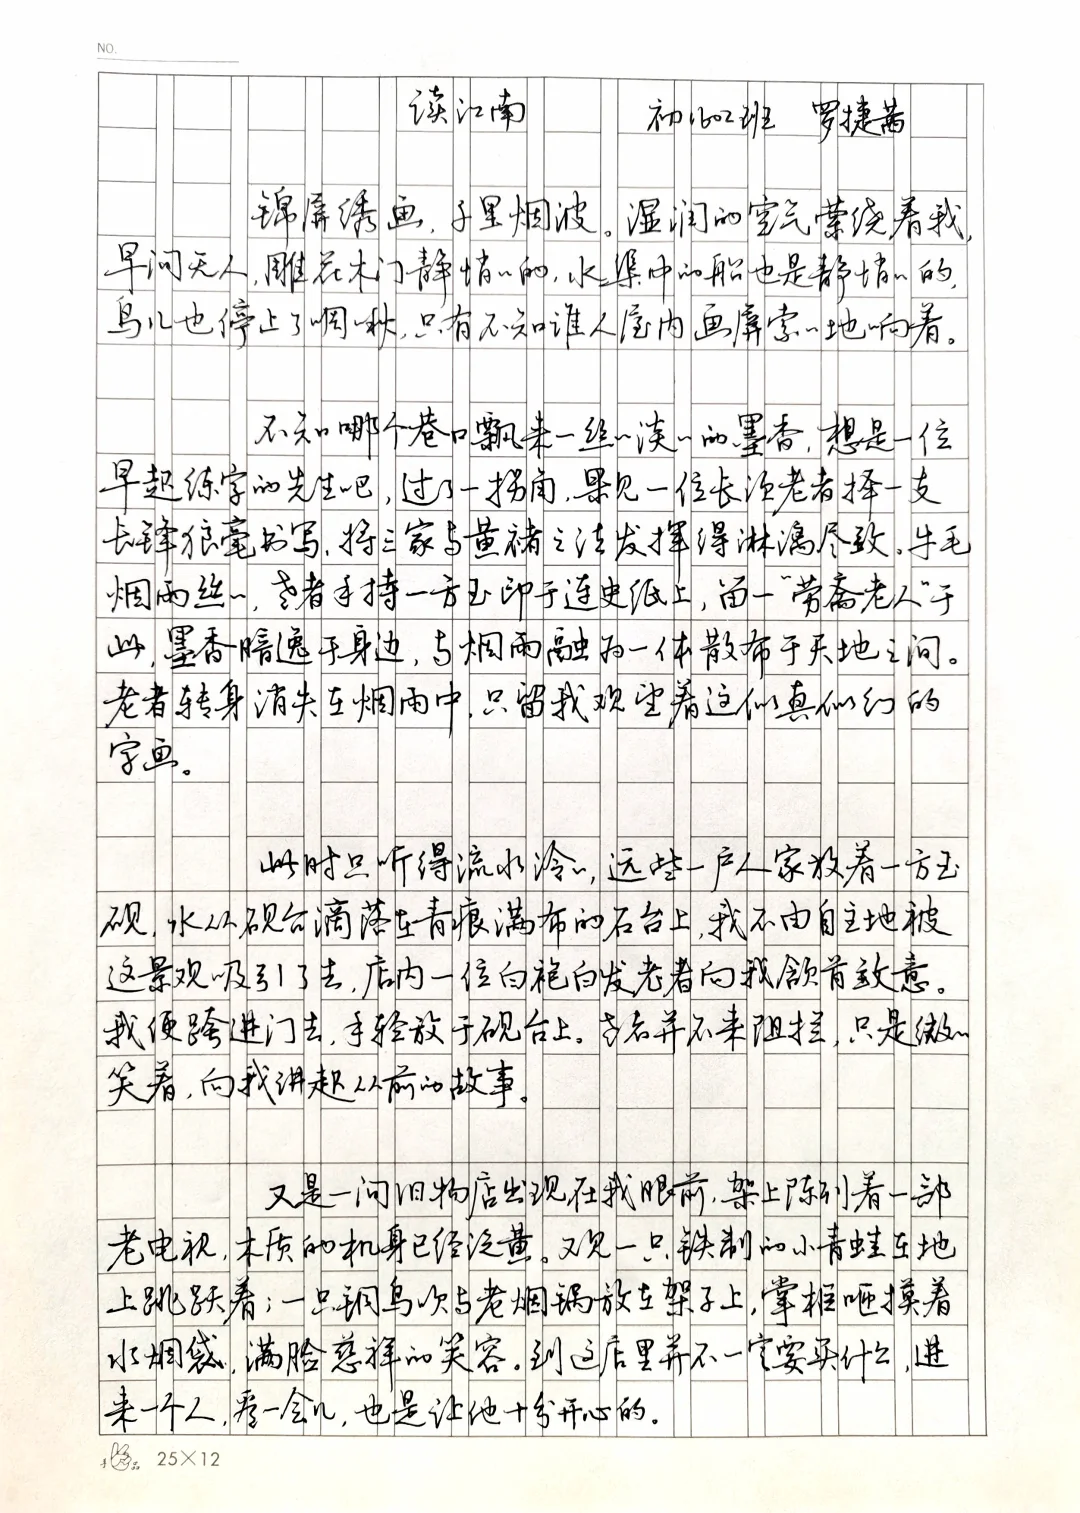 NO.
读江南 初1602班 罗捷茜
锦屏绣画,千里烟波。湿润的空气萦绕着我,
早间无人,雕花木门静悄〃的,水渠中的船也是静悄〃的,
鸟儿也停止了啁啾,只有不知谁人屋内画屏索〃地响着。
不知哪个巷口飘来一丝〃淡〃的墨香,想是一位
早起练字的先生吧,过了一拐角,果见一位长须老者择一支
长锋狼毫书写,将三家与黄褚之法发挥得淋漓尽致。牛毛
烟雨丝〃,老者手持一方玉印于连史纸上,留一“劳斋老人”于
此,墨香暗逸于身边,与烟雨融为一体散布于天地之间。
老者转身消失在烟雨中,只留我观望着这似真似幻的
字画。
此时只听得流水泠〃,远些一户人家放着一方玉
砚,水从砚台滴落在青痕满布的石台上,我不由自主地被
这景观吸引了去,店内一位白袍白发老者向我颔首致意。
我便跨进门去,手轻放于砚台上。老者并不来阻拦,只是微〃
笑着,向我讲起从前的故事。
又是一间旧物店出现在我眼前,架上陈列着一部
老电视,木质的机身已经泛黄。又见一只铁制的小青蛙在地
上跳跃着;一只铜鸟吹与老烟锅放在架子上,掌柜咂摸着
水烟袋,满脸慈祥的笑容。到这店里并不一定要买什么,进
来一个人,看一会儿,也是让他十分开心的。
25×12